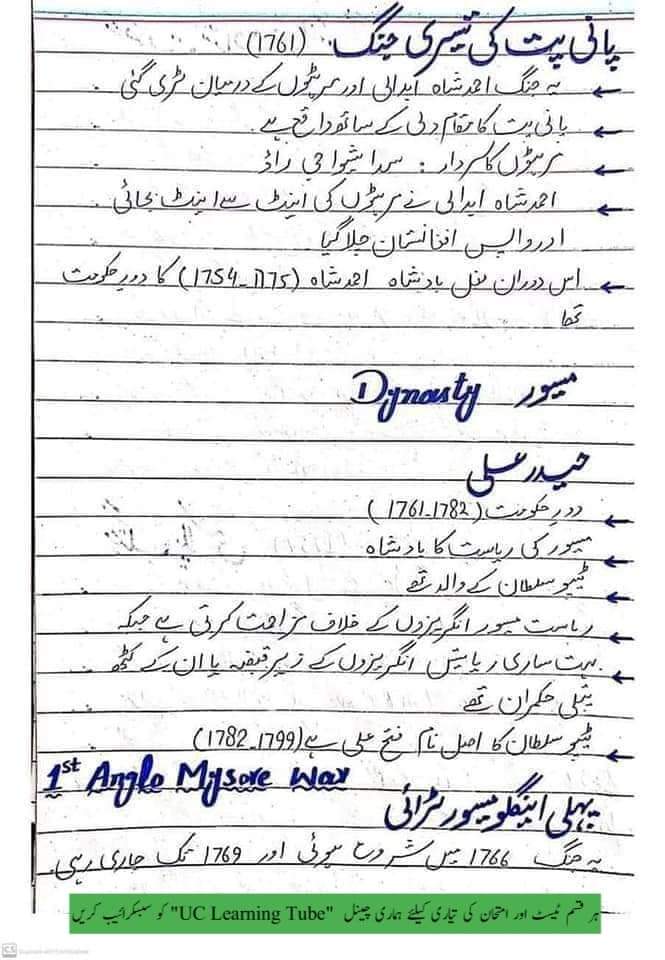 پانی پت کی تیسری جنگ (1761)
یہ جنگ احمد شاہ ابدالی اور مرہٹوں کے درمیان لڑی گئی
پانی پت کا مقام دلی کے ساتھ واقع ہے
مرہٹوں کا سردار : سدا شیوا جی راؤ
احمد شاہ ابدالی نے مرہٹوں کی اینٹ سے اینٹ بجائی
اور واپس افغانستان چلا گیا
اس دوران مغل بادشاہ احمد شاہ (1754-1775) کا دور حکومت
تھا
میسور Dynasty
حیدر علی
دور حکومت (1761-1782)
میسور کی ریاست کا بادشاہ
ٹیپو سلطان کے والد تھے
ریاست میسور انگریزوں کے خلاف مزاحمت کرتی ہے جبکہ
بہت ساری ریاستیں انگریزوں کے زیر قبضہ یا ان کے کٹھ
پتلی حکمران تھے
ٹیپو سلطان کا اصل نام فتح علی ہے (1782-1799)
1st Anglo Mysore War
پہلی اینگلو میسور لڑائی
یہ جنگ 1766 میں شروع ہوئی اور 1769 تک جاری رہی
ہر قسم ٹیسٹ اور امتحان کی تیاری کیلئے ہماری چینل "UC Learning Tube" کو سبسکرائیب کریں
CS